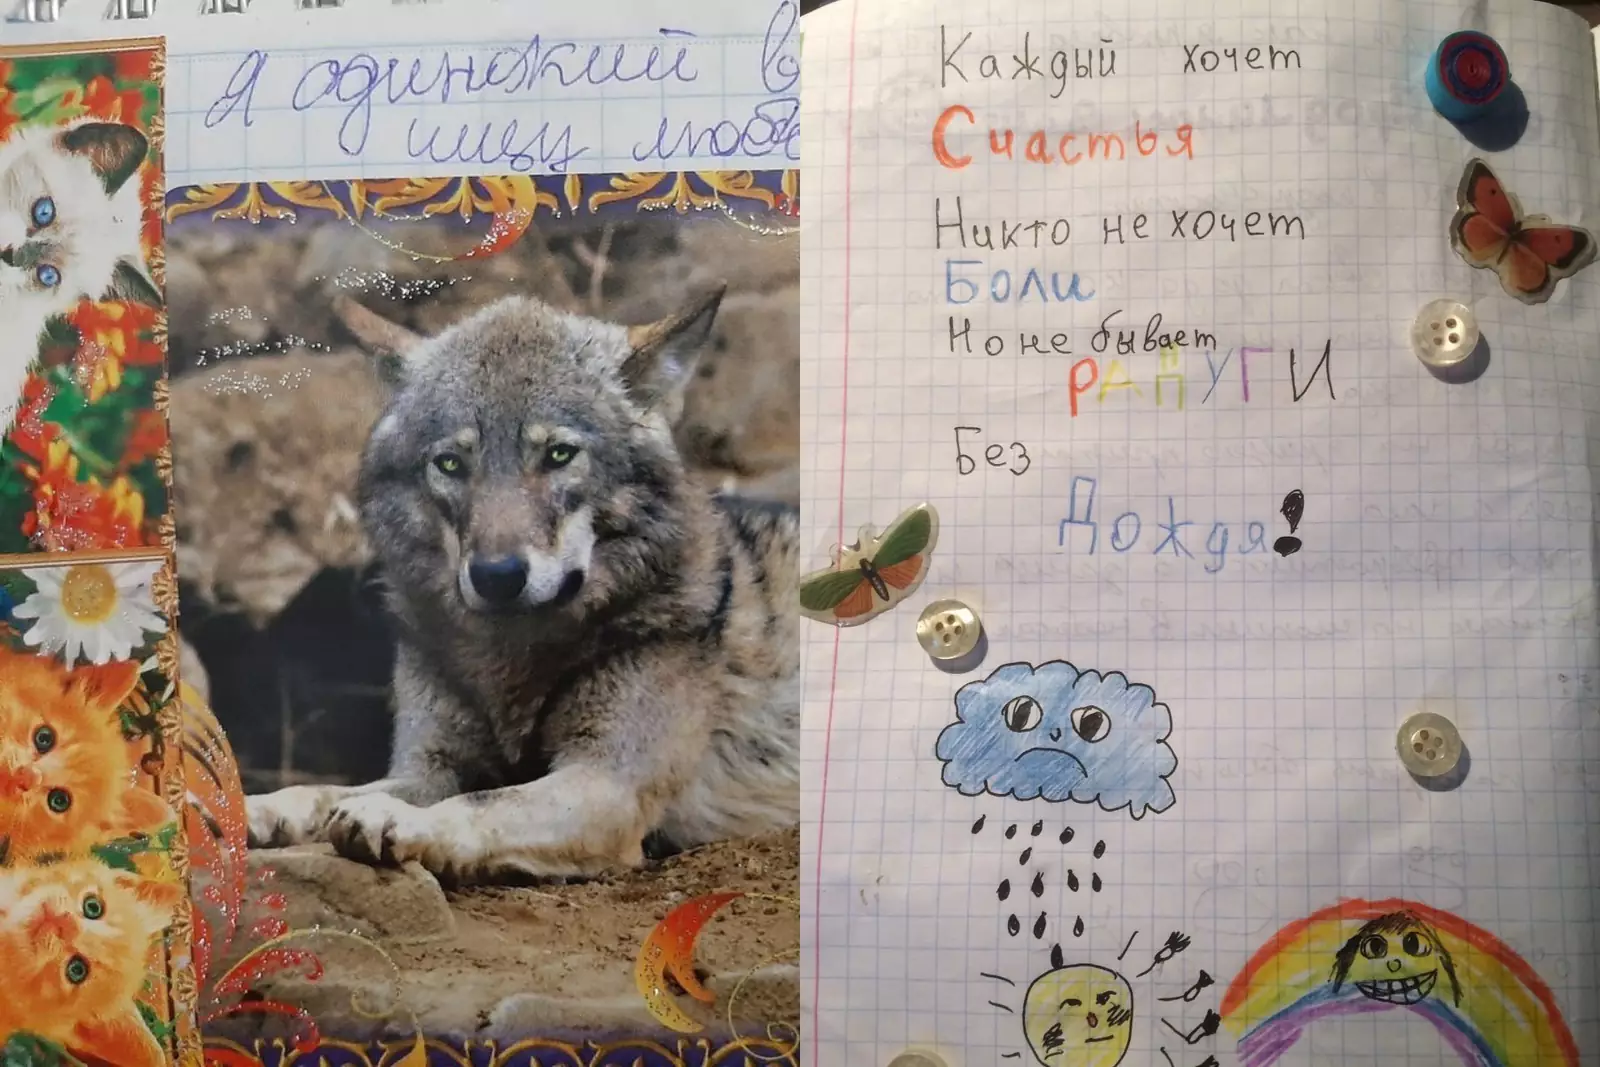 Я одинокий
ищу
Каждый хочет
Счастья
Никто не хочет
Боли
Но не бывает
РАДУГИ
Без
Дождя!